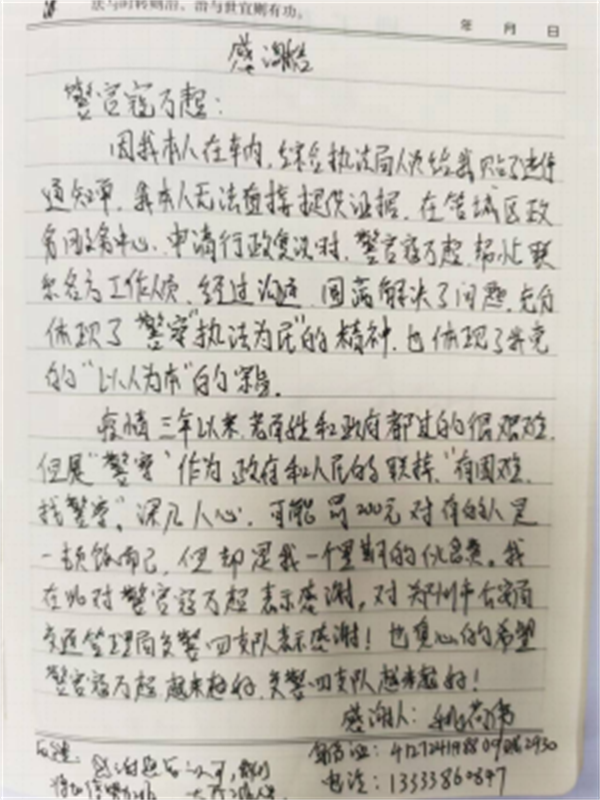 法与时转则治,治与世宜则有功。
年 月 日
感谢信
警官寇万超:
因我本人在车内,综合执法局人员给我贴了违停
通知单,我本人无法直接提供证据,在管城区政
务服务中心,申请行政复议时,警官寇万超,帮忙联
系各方工作人员,经过沟通,圆满解决了问题,充分
体现了警察"执法为民"的精神,也体现了我党
的"以人为本"的宗旨。
疫情三年以来,老百姓和政府都过的很艰难,
但是"警察"作为政府和人民的联接,"有困难,
找警察",深入人心,可能罚200元对有的人是
一顿饭而已,但却是我一个星期的伙食费。我
在此对警官寇万超表示感谢,对郑州市公安局
交通管理局交警四支队表示感谢!也衷心的希望
警官寇万超越来越好,交警四支队越来越好!
感谢人:
身份证:
电话: